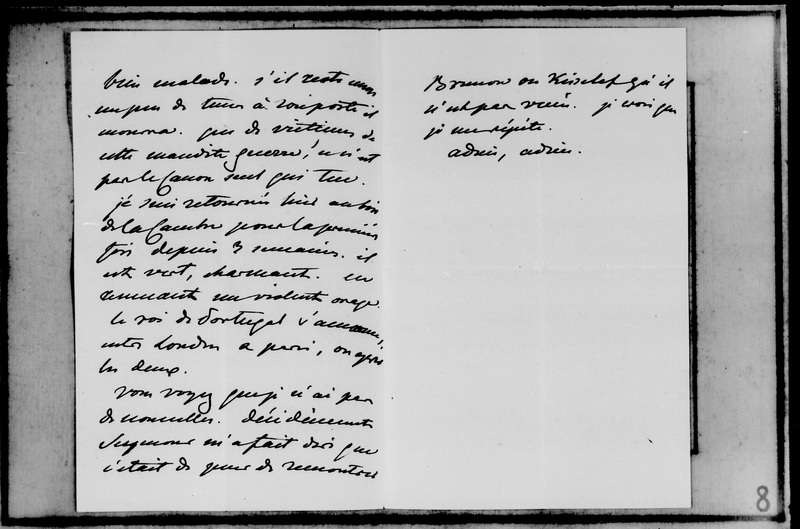 bien malade. s'il reste encore
un peu de tems à son poste il
mourra. que de victimes de
cette maudite guerre! ce n'est
pas le Canon seul qui tue.
je suis retourné hier au bois
de la Cambre pour la première
fois depuis 3 semaines. il
est vert, charmant. en
revenant un violent orage.
le roi de Portugal s'annonce,
entre Londres et paris, ou après
les deux.
vous voyez que je n'ai pas
de nouvelles. décidément
Seymour m'a fait dire que
c'était de peur de rencontrer
Brunow ou Kisselef qu'il
n'est pas venu. je crois que
je me répète.
adieu, adieu.
8